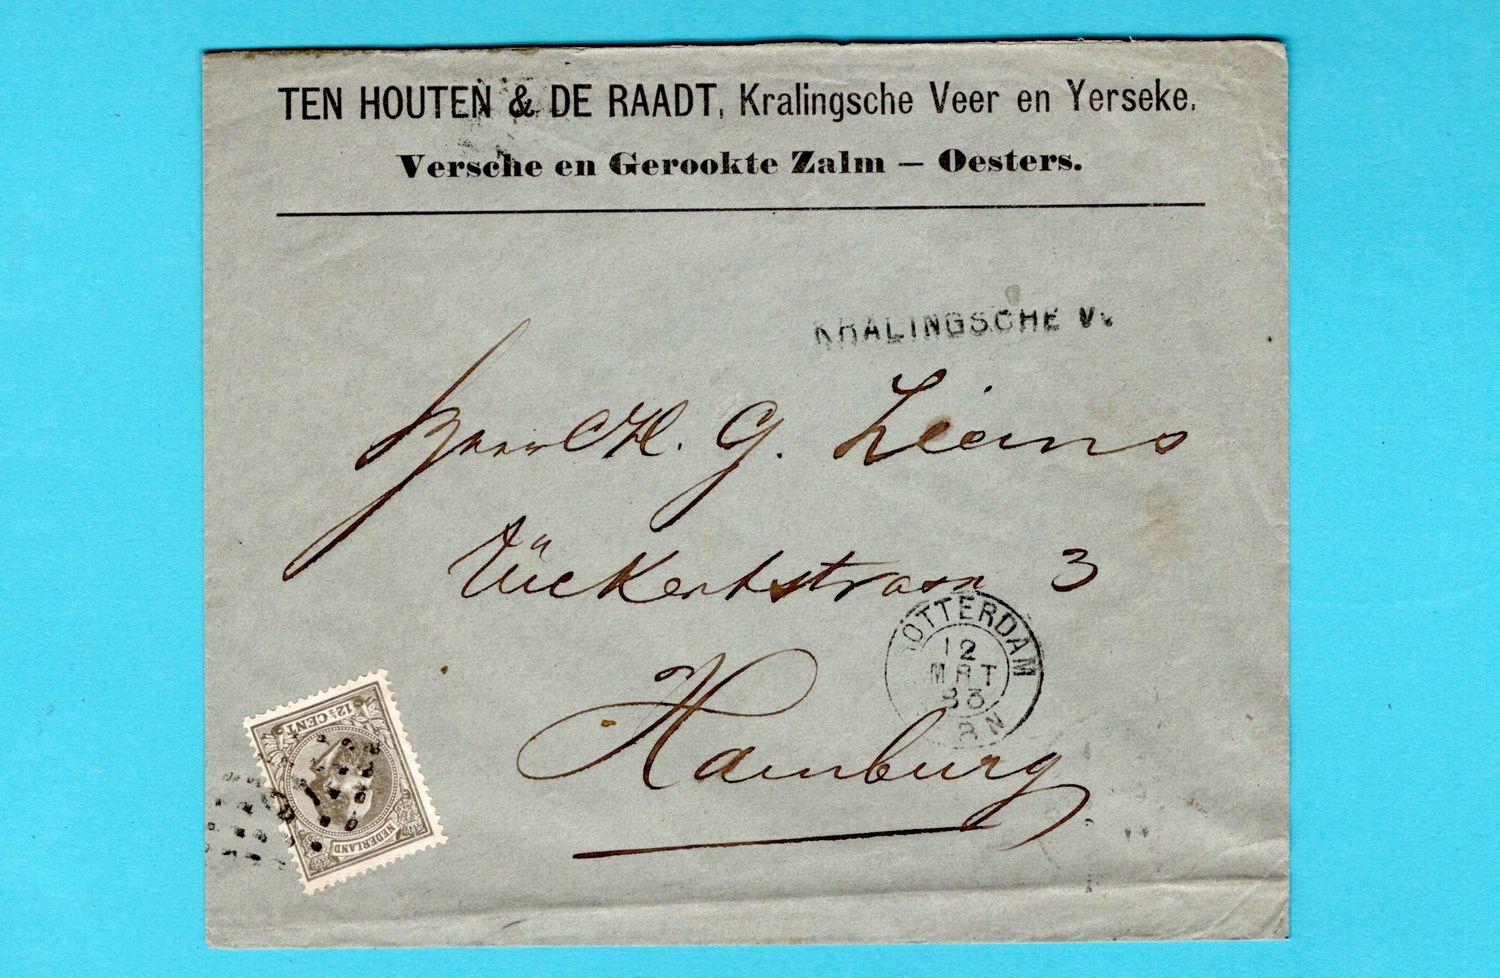 TEN HOUTEN & DE RAADT, Kralingsche Veer en Yerseke.
Versche en Gerookte Zalm — Oesters.
KRALINGSCHE V.
H. G. Liens
3
ROTTERDAM
12
MRT
83
8N
Hamburg
12½ CENT
NEDERLAND